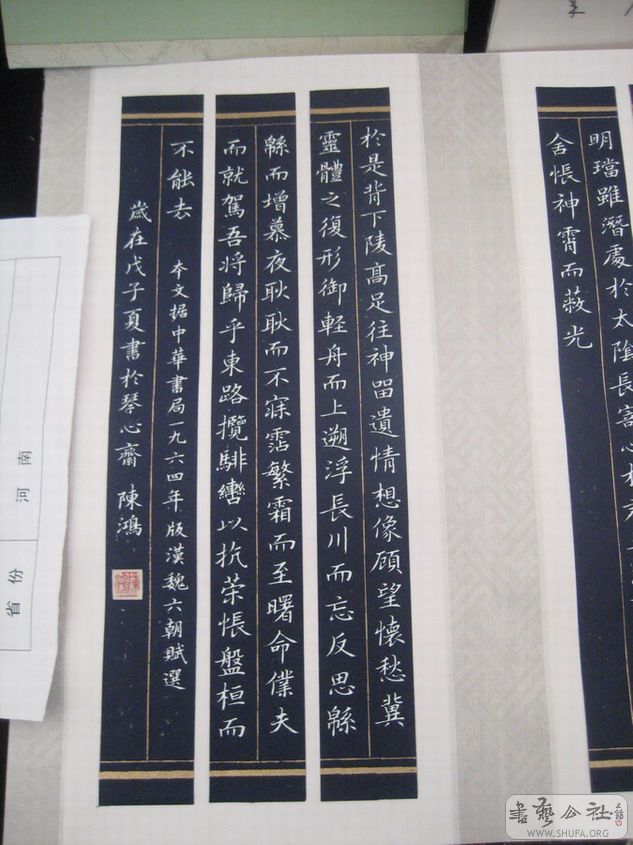 明璫雖潛處於太陰長寄心於
舍悵神霄而蔽光
於是背下陵高足往神畱遺情想像願望懷愁冀
靈體之復形御輕舟而上遡浮長川而忘反思緜
緜而增慕夜耿耿而不寐霑繁霜而至曙命僕夫
而就駕吾將歸乎東路攬騑轡以抗策悵盤桓而
不能去 本文据中華書局一九六四年版漢魏六朝賦選
歲在戊子夏書於琴心齋 陳鴻
省份 河南
書藝公社
WWW.SHUFA.ORG